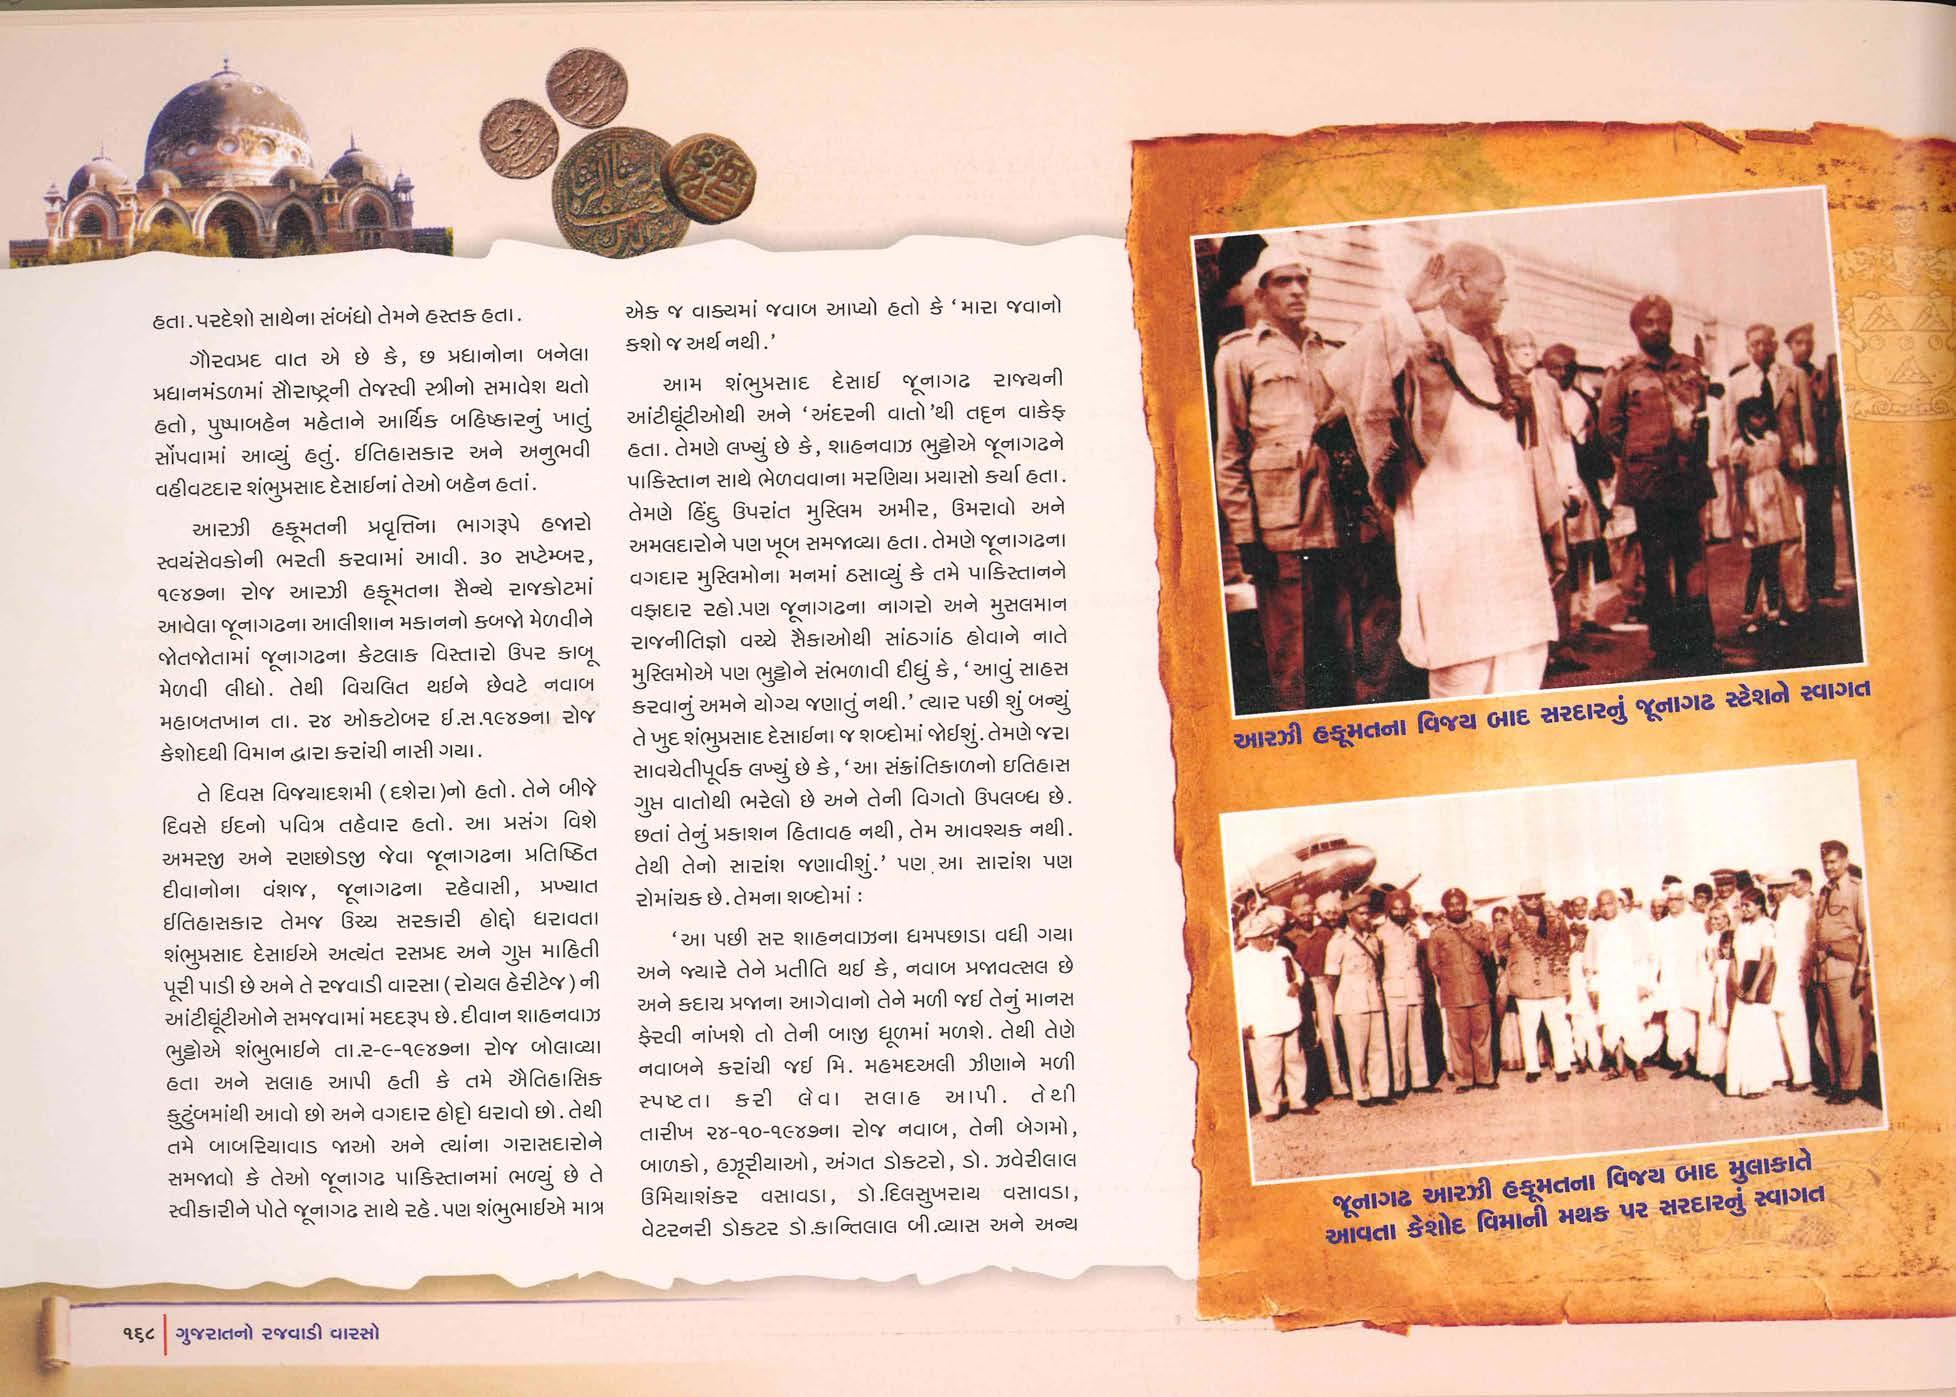 હતા.પરદેશો સાથેના સંબંધો તેમને હસ્તક હતા.
ગૌરવપ્રદ વાત એ છે કે, છ પ્રધાનોના બનેલા
પ્રધાનમંડળમાં સૌરાષ્ટ્રની તેજસ્વી સ્ત્રીનો સમાવેશ થતો
હતો, પુષ્પાબહેન મહેતાને આર્થિક બહિષ્કારનું ખાતું
સોંપવામાં આવ્યું હતું. ઈતિહાસકાર અને અનુભવી
વહીવટદાર શંભુપ્રસાદ દેસાઈનાં તેઓ બહેન હતાં.
આરઝી હકૂમતની પ્રવૃત્તિના ભાગરૂપે હજારો
સ્વયંસેવકોની ભરતી કરવામાં આવી. ૩૦ સપ્ટેમ્બર,
૧૯૪૭ના રોજ આરઝી હકૂમતના સૈન્યે રાજકોટમાં
આવેલા જૂનાગઢના આલીશાન મકાનનો કબજો મેળવીને
જોતજોતામાં જૂનાગઢના કેટલાક વિસ્તારો ઉપર કાબૂ
મેળવી લીધો. તેથી વિચલિત થઈને છેવટે નવાબ
મહાબતખાન તા. ૨૪ ઓક્ટોબર ઈ.સ.૧૯૪૭ના રોજ
કેશોદથી વિમાન દ્વારા કરાંચી નાસી ગયા.
તે દિવસ વિજયાદશમી (દશેરા)નો હતો. તેને બીજે
દિવસે ઈદનો પવિત્ર તહેવાર હતો. આ પ્રસંગ વિશે
અમરજી અને રણછોડજી જેવા જૂનાગઢના પ્રતિષ્ઠિત
દીવાનોના વંશજ, જૂનાગઢના રહેવાસી, પ્રખ્યાત
ઈતિહાસકાર તેમજ ઉચ્ચ સરકારી હોદ્દો ધરાવતા
શંભુપ્રસાદ દેસાઈએ અત્યંત રસપ્રદ અને ગુપ્ત માહિતી
પૂરી પાડી છે અને તે રજવાડી વારસા (રોયલ હેરીટેજ) ની
આંટીઘૂંટીઓને સમજવામાં મદદરૂપ છે. દીવાન શાહનવાઝ
ભુટ્ટોએ શંભુભાઈને તા.૨-૯-૧૯૪૭ના રોજ બોલાવ્યા
હતા અને સલાહ આપી હતી કે તમે ઐતિહાસિક
કુટુંબમાંથી આવો છો અને વગદાર હોદ્દો ધરાવો છો. તેથી
તમે બાબરિયાવાડ જાઓ અને ત્યાંના ગરાસદારોને
સમજાવો કે તેઓ જૂનાગઢ પાકિસ્તાનમાં ભળ્યું છે તે
સ્વીકારીને પોતે જૂનાગઢ સાથે રહે. પણ શંભુભાઈએ માત્ર
એક જ વાક્યમાં જવાબ આપ્યો હતો કે ‘મારા જવાનો
કશો જ અર્થ નથી.’
આમ શંભુપ્રસાદ દેસાઈ જૂનાગઢ રાજ્યની
આંટીઘૂંટીઓથી અને ‘અંદરની વાતો’થી તદ્દન વાકેફ
હતા. તેમણે લખ્યું છે કે, શાહનવાઝ ભુટ્ટોએ જૂનાગઢને
પાકિસ્તાન સાથે ભેળવવાના મરણિયા પ્રયાસો કર્યા હતા.
તેમણે હિંદુ ઉપરાંત મુસ્લિમ અમીર, ઉમરાવો અને
અમલદારોને પણ ખૂબ સમજાવ્યા હતા. તેમણે જૂનાગઢના
વગદાર મુસ્લિમોના મનમાં ઠસાવ્યું કે તમે પાકિસ્તાનને
વફાદાર રહો.પણ જૂનાગઢના નાગરો અને મુસલમાન
રાજનીતિજ્ઞો વચ્ચે સૈકાઓથી સાંઠગાંઠ હોવાને નાતે
મુસ્લિમોએ પણ ભુટ્ટોને સંભળાવી દીધું કે, ‘આવું સાહસ
કરવાનું અમને યોગ્ય જણાતું નથી.’ ત્યાર પછી શું બન્યું
તે ખુદ શંભુપ્રસાદ દેસાઈના જ શબ્દોમાં જોઈશું. તેમણે જરા
સાવચેતીપૂર્વક લખ્યું છે કે, ‘આ સંક્રાંતિકાળનો ઇતિહાસ
ગુપ્ત વાતોથી ભરેલો છે અને તેની વિગતો ઉપલબ્ધ છે.
છતાં તેનું પ્રકાશન હિતાવહ નથી, તેમ આવશ્યક નથી.
તેથી તેનો સારાંશ જણાવીશું.’ પણ આ સારાંશ પણ
રોમાંચક છે. તેમના શબ્દોમાં :
‘આ પછી સર શાહનવાઝના ધમપછાડા વધી ગયા
અને જ્યારે તેને પ્રતીતિ થઈ કે, નવાબ પ્રજાવત્સલ છે
અને કદાચ પ્રજાના આગેવાનો તેને મળી જઈ તેનું માનસ
ફેરવી નાંખશે તો તેની બાજી ધૂળમાં મળશે. તેથી તેણે
નવાબને કરાંચી જઈ મિ. મહમદઅલી ઝીણાને મળી
સ્પષ્ટતા કરી લેવા સલાહ આપી. તેથી
તારીખ ૨૪-૧૦-૧૯૪૭ના રોજ નવાબ, તેની બેગમો,
બાળકો, હઝૂરીયાઓ, અંગત ડોક્ટરો, ડો. ઝવેરીલાલ
ઉમિયાશંકર વસાવડા, ડો.દિલસુખરાય વસાવડા,
વેટરનરી ડોક્ટર ડો.કાન્તિલાલ બી.વ્યાસ અને અન્ય
આરઝી હકૂમતના વિજય બાદ સરદારનું જૂનાગઢ સ્ટેશને સ્વાગત
જૂનાગઢ આરઝી હકૂમતના વિજય બાદ મુલાકાતે
આવતા કેશોદ વિમાની મથક પર સરદારનું સ્વાગત
૧૬૮ ગુજરાતનો રજવાડી વારસો